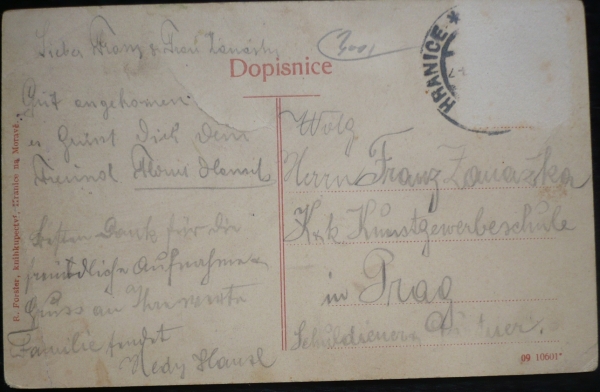 Lieber Franz Frau
Dopisnice
HRANICE
Gut angekommen
es Grüsst Dich Dein
Freund
Besten Dank für die
freundliche Aufnahme
Gruss an Ihre werte
Familie sendet
Wolg
Herrn Franz
K.k. Kunstgewerbeschule
in Prag
Schuldiener
R. Forster, knihkupectví, Hranice na Moravě.
09 10601*